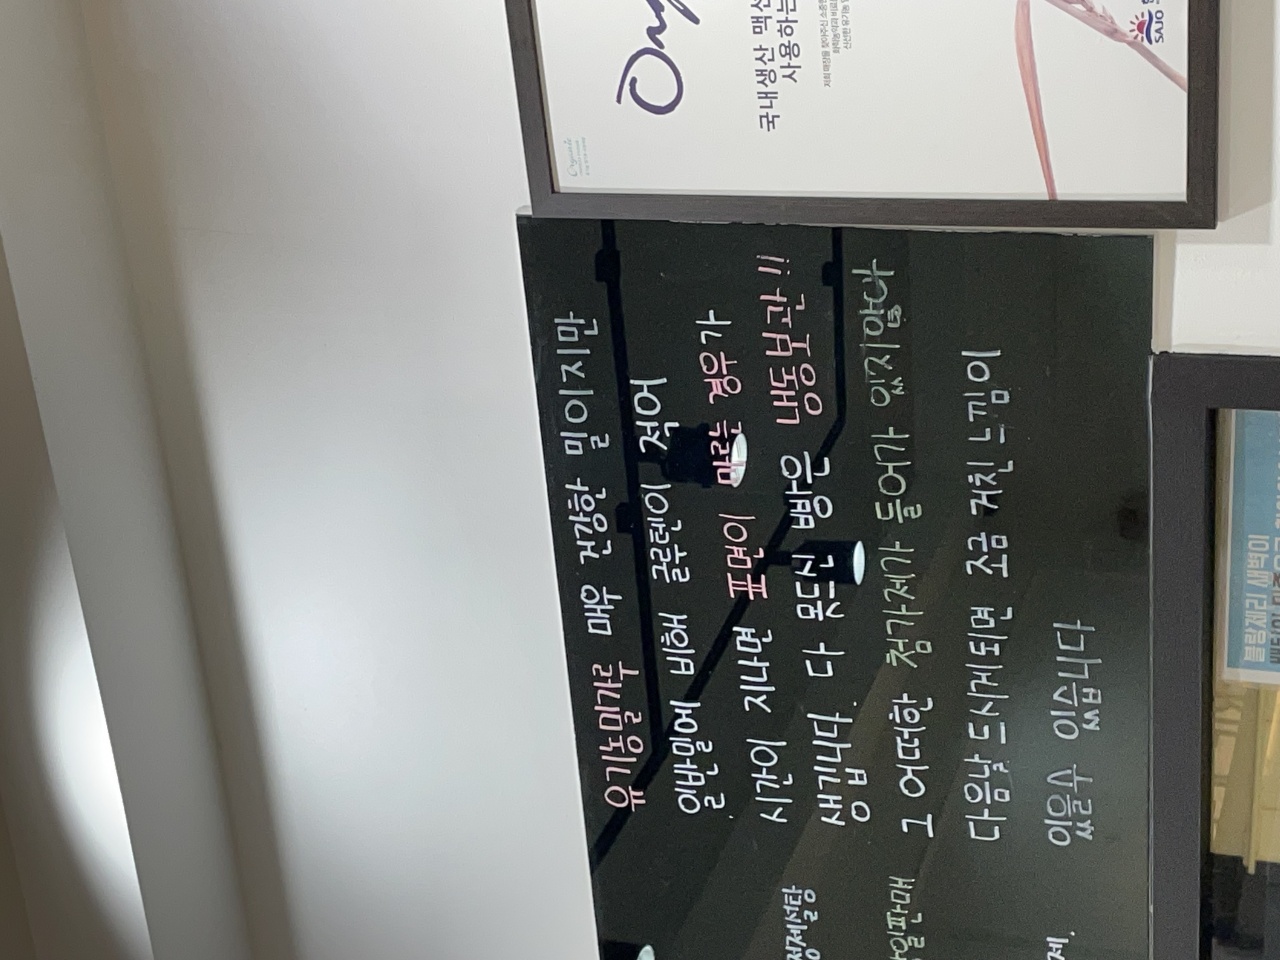 유기농밀가루 매우 건강한 밀이지만
일반밀에 비해 글루텐이 적어
시간이 지나면 표면이 마르는 경우가
생깁니다. 다 못드신 빵은 냉동보관!!
그 어떠한 첨가제가 들어가 있지않다
다음날 드시게되면 조금 거친 느낌이
있을수 있습니다
정제설탕
일판매
제.
국내생산 맥선
사용하는
SAJO
블랑제리 새벽이